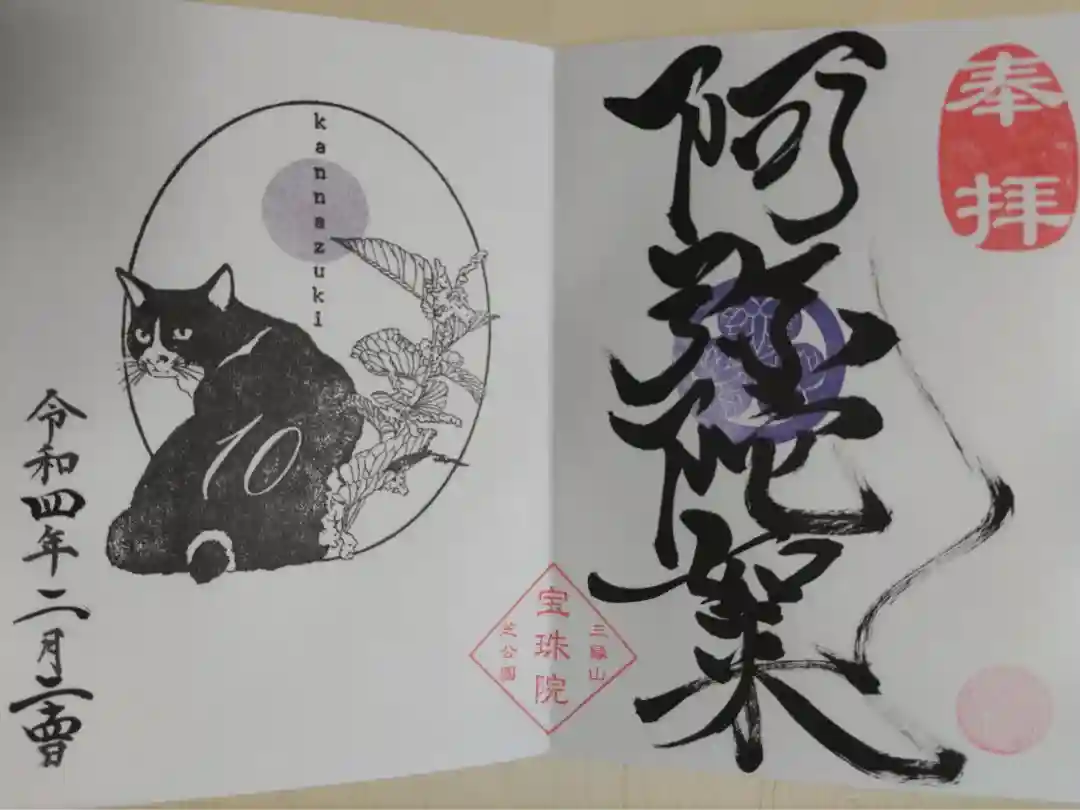 奉拝
阿彌陀如来
三縁山
宝珠院
芝公園
kannazuki
10
令和四年二月二十四日